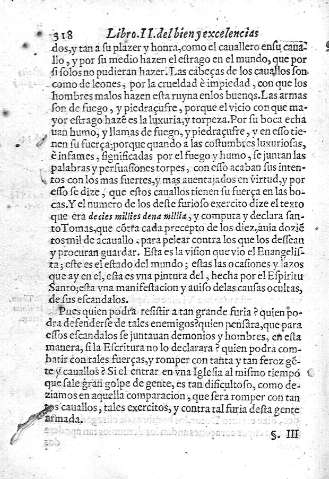 318 Libro. II. del bien y excelencias
dos, y tan a su plazer y honra, como el cauallero en su caua-
llo, y por su medio hazen el estrago en el mundo, que por
si solos no pudieran hazer. Las cabeças de los cauallos son
como de leones, por la crueldad è impiedad, con que los
hombres malos hazen esta ruyna en los buenos. Las armas
son de fuego, y piedraçufre, porque el vicio con que ma-
yor estrago hazẽ es la luxuria, y torpeza. Por su boca echa
uan humo, y llamas de fuego, y piedraçufre, y en esso tie-
nen su fuerça; porque quando a las costumbres luxuriosas,
è infames, significadas por el fuego y humo, se juntan las
palabras y persuasiones torpes, con esso acaban sus inten-
tos con los mas fuertes, y mas auentajados en virtud, y por
esso se dize, que estos cauallos tienen su fuerça en las bo-
cas. Y el numero de los deste furioso exercito dize el texto
que era decies millies dena millia, y computa y declara san-
to Tomas, que cõtra cada precepto de los diez, auia doziẽ
tos mil de acauallo, para pelear contra los que los dessean
y procuran guardar. Esta es la vision que vio el Euangelis-
ta; este es el estado del mundo; estas las ocasiones y lazos
que ay en el, esta es vna pintura del, hecha por el Espiritu
Santo; esta vna manifestacion y auiso de las causas ocultas,
de sus escandalos.
Pues quien podra resistir a tan grande furia? quien po-
dra defenderse de tales enemigos? quien pensara, que para
essos escandalos se juntauan demonios y hombres, en esta
manera, si la Escritura no lo declarara? quien podra com-
batir con tales fuerças, y romper con tanta y tan feroz gẽ-
te y cauallos? Si el entrar en vna Iglesia al mismo tiempo
que sale gran golpe de gente, es tan dificultoso, como de-
ziamos en aquella comparacion, que sera romper con tan
tos cauallos, tales exercitos, y contra tal furia desta gente
armada.
§. III